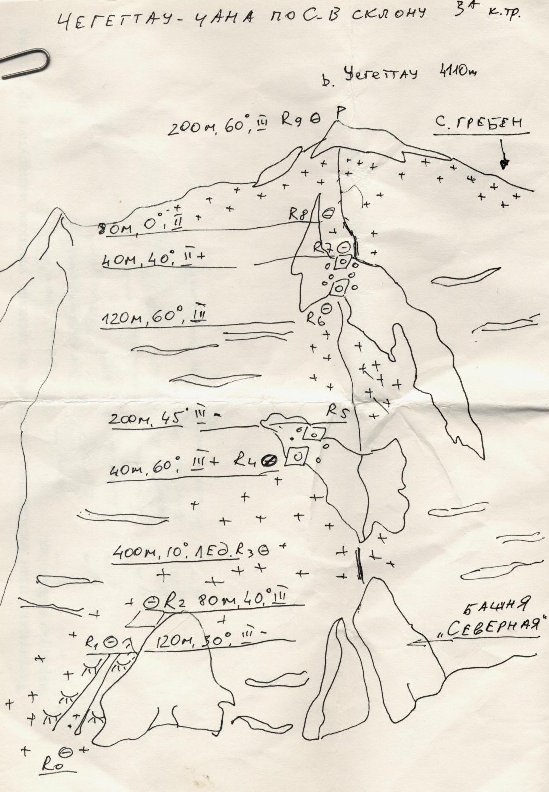 ЧЕГЕТТАУ-ЧАНА ПО С-В СКЛОНУ 3А к.тр.
в. Чегеттау 4110м
200м, 60°, III R9
Р
С. ГРЕБЕН
R8
80м, 0°, II
R7
40м, 40°, II+
120м, 60°, III
R6
200м, 45° III-
R5
40м, 60°, III+ R4
400м, 10°, ЛЕД. R3
R2 80м, 40°, III
БАШНЯ
"СЕВЕРНАЯ"
R1 120м, 30°, III-
R0